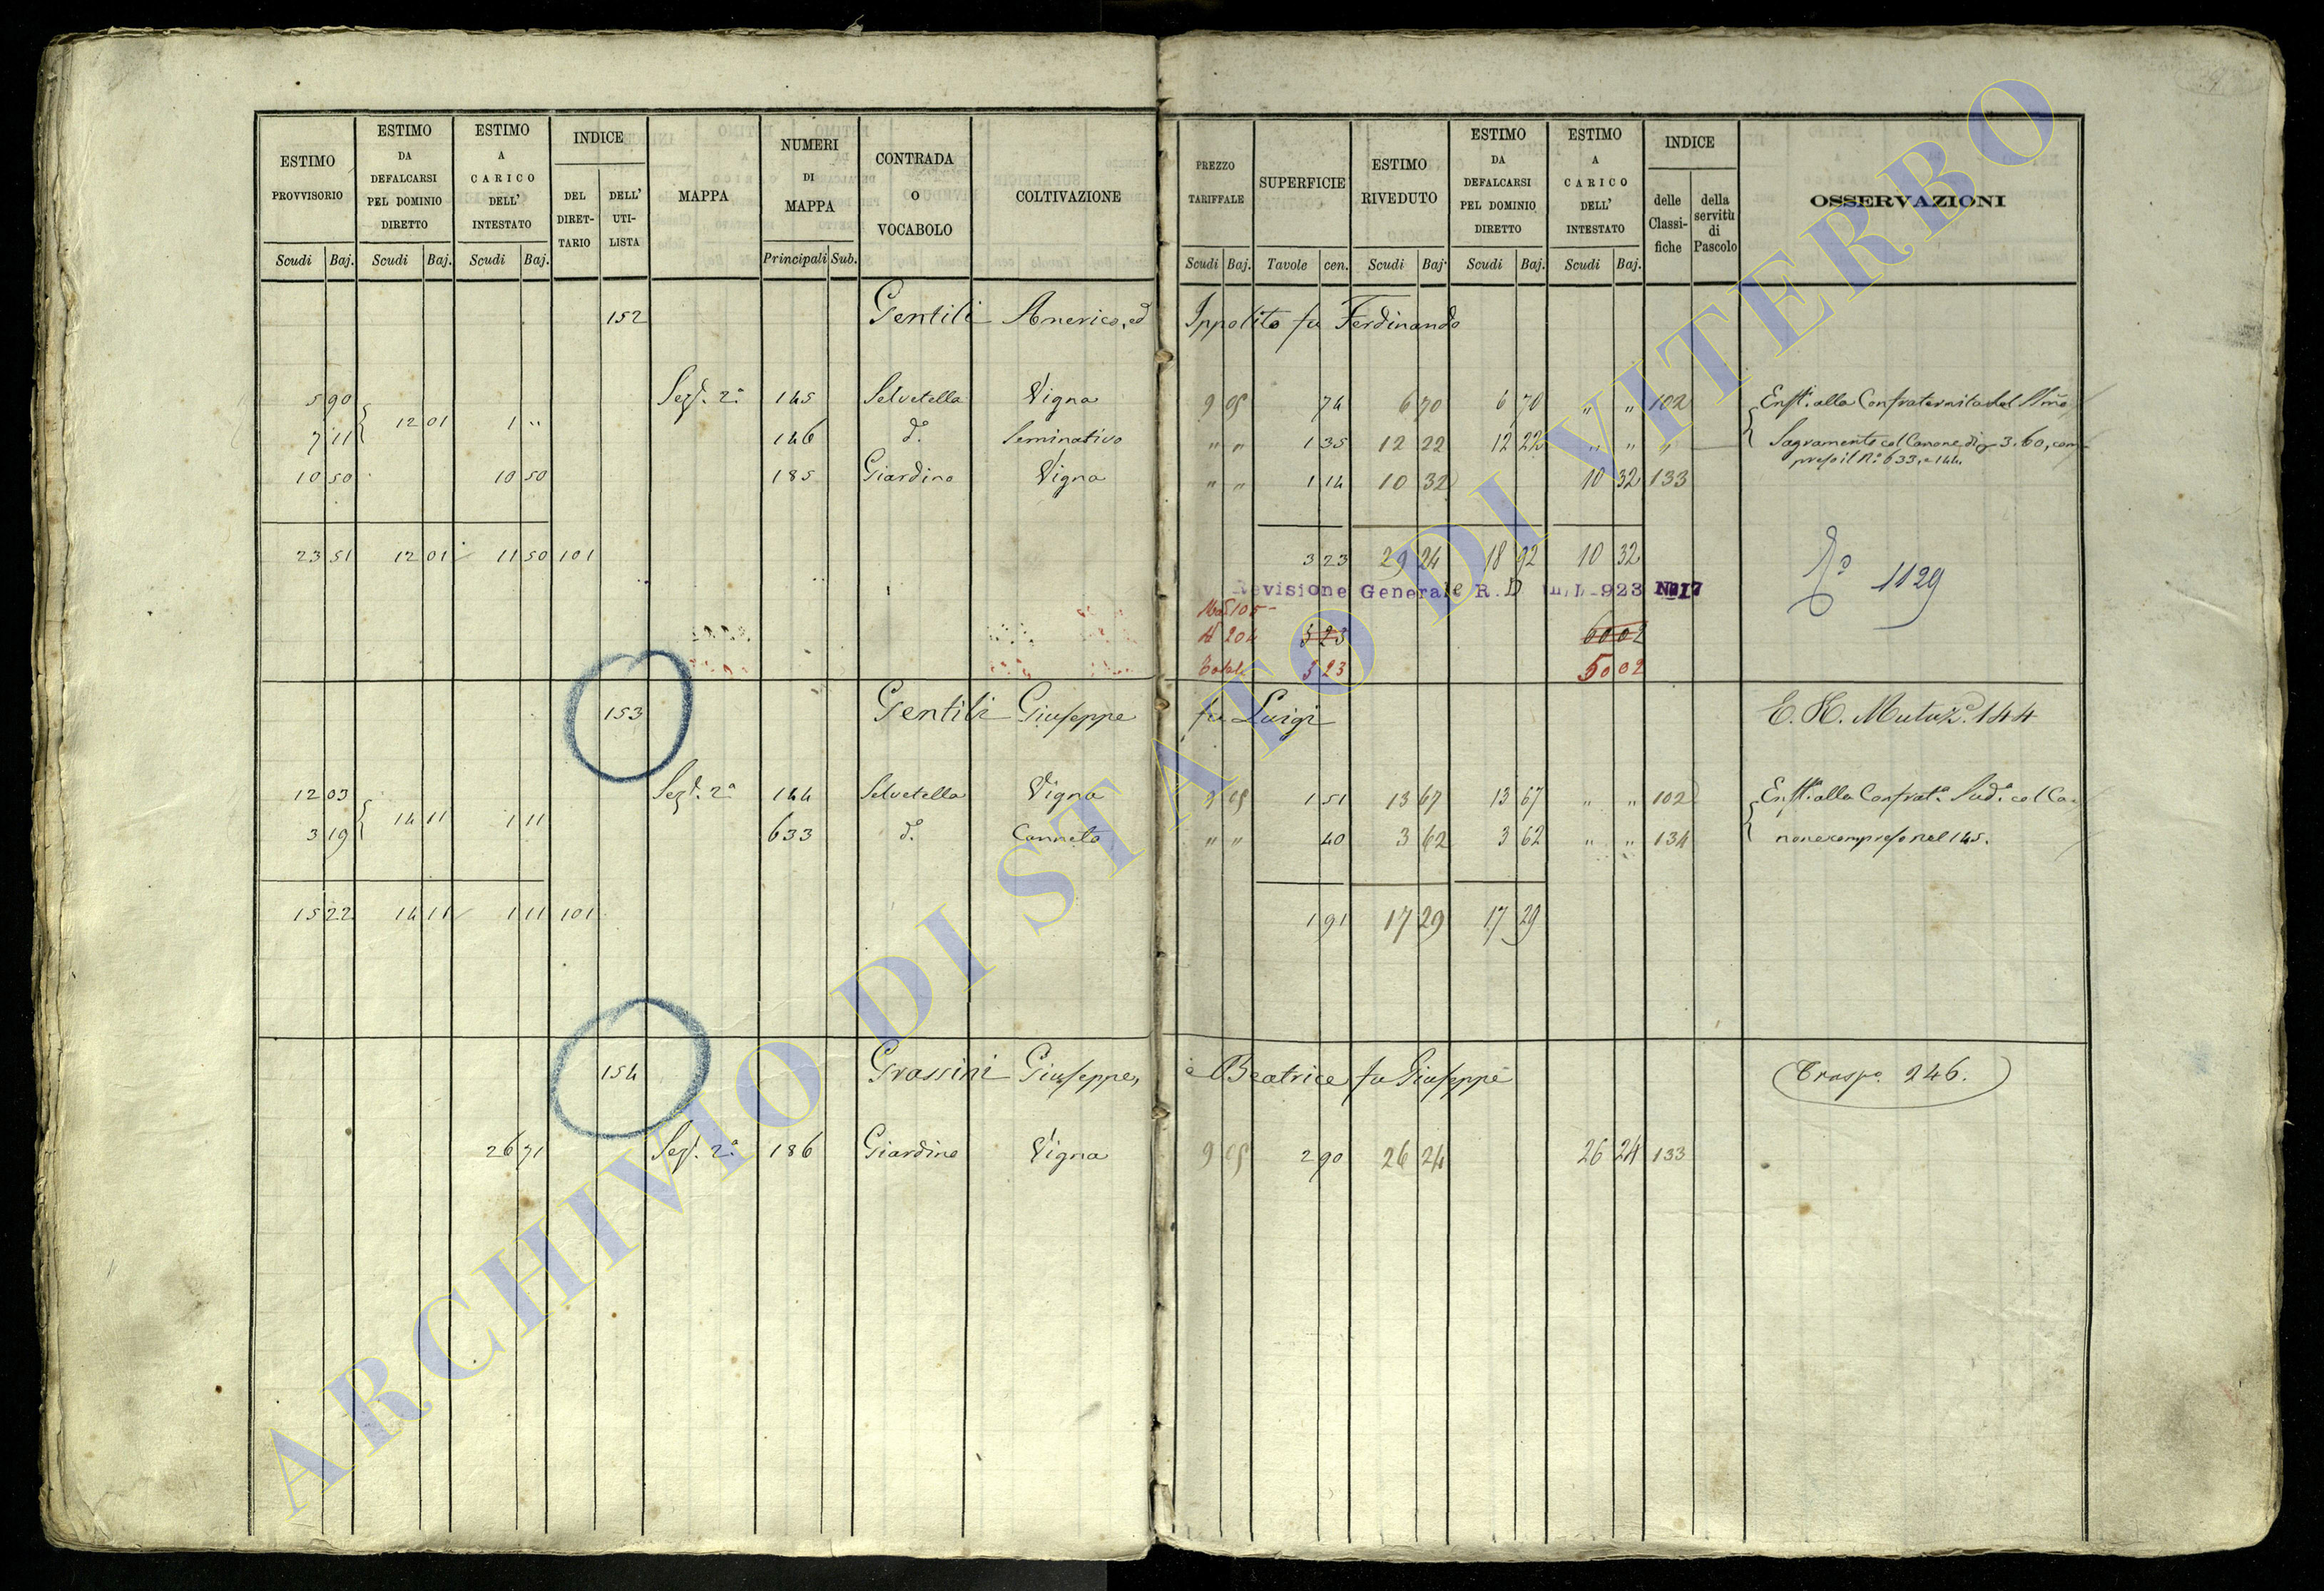 ESTIMO PROVVISORIO
Scudi Baj.
ESTIMO DA DEFALCARSI PEL DOMINIO DIRETTO
Scudi Baj.
ESTIMO A CARICO DELL' INTESTATO
Scudi Baj.
INDICE
DEL DIRET- TARIO
DELL' UTI- LISTA
MAPPA
NUMERI DI MAPPA
Principali Sub.
CONTRADA O VOCABOLO
COLTIVAZIONE
PREZZO TARIFFALE
Scudi Baj.
SUPERFICIE
Tavole cen.
ESTIMO RIVEDUTO
Scudi Baj.
ESTIMO DA DEFALCARSI PEL DOMINIO DIRETTO
Scudi Baj.
ESTIMO A CARICO DELL' INTESTATO
Scudi Baj.
INDICE
delle Classi- fiche
della servitù di Pascolo
OSSERVAZIONI
152 Gentili Americo, ed Ippolito fu Ferdinando
5 90 Sez.e 2.a 145 Selvetella Vigna 9 05 74 6 70 6 70 " " 102 Enft. alla Confraternita del SSmo
12 01 1 "
7 11 146 d.o Seminativo " " 1 35 12 22 12 22 " " " Sagramento col Canone di 3.60, com-
preso il N.o 633, e 144.
10 50 10 50 185 Giardino Vigna " " 1 14 10 32 10 32 133
23 51 12 01 11 50 101 3 23 29 24 18 92 10 32
1129
Revisione Generale R. D. 923 No 17
105
204 3 23 60 02
Total 3 23 50 02
153 Gentili Giuseppe fu Luigi E. H. Mutaz. 144
12 03 Sez.e 2.a 144 Selvetella Vigna 9 05 1 51 13 67 13 67 " " 102 Enft. alla Confrat.a Sud.a col Ca-
14 11 1 11
3 19 633 d.o Canneto " " 40 3 62 3 62 " " 134 none compreso nel 145.
15 22 14 11 1 11 101 1 91 17 29 17 29
154 Grassini Giuseppe, e Beatrice fu Giuseppe Trasp.o 246.
26 71 Sez. 2.a 186 Giardino Vigna 9 05 2 90 26 24 26 24 133
ARCHIVIO DI STATO DI VITERBO